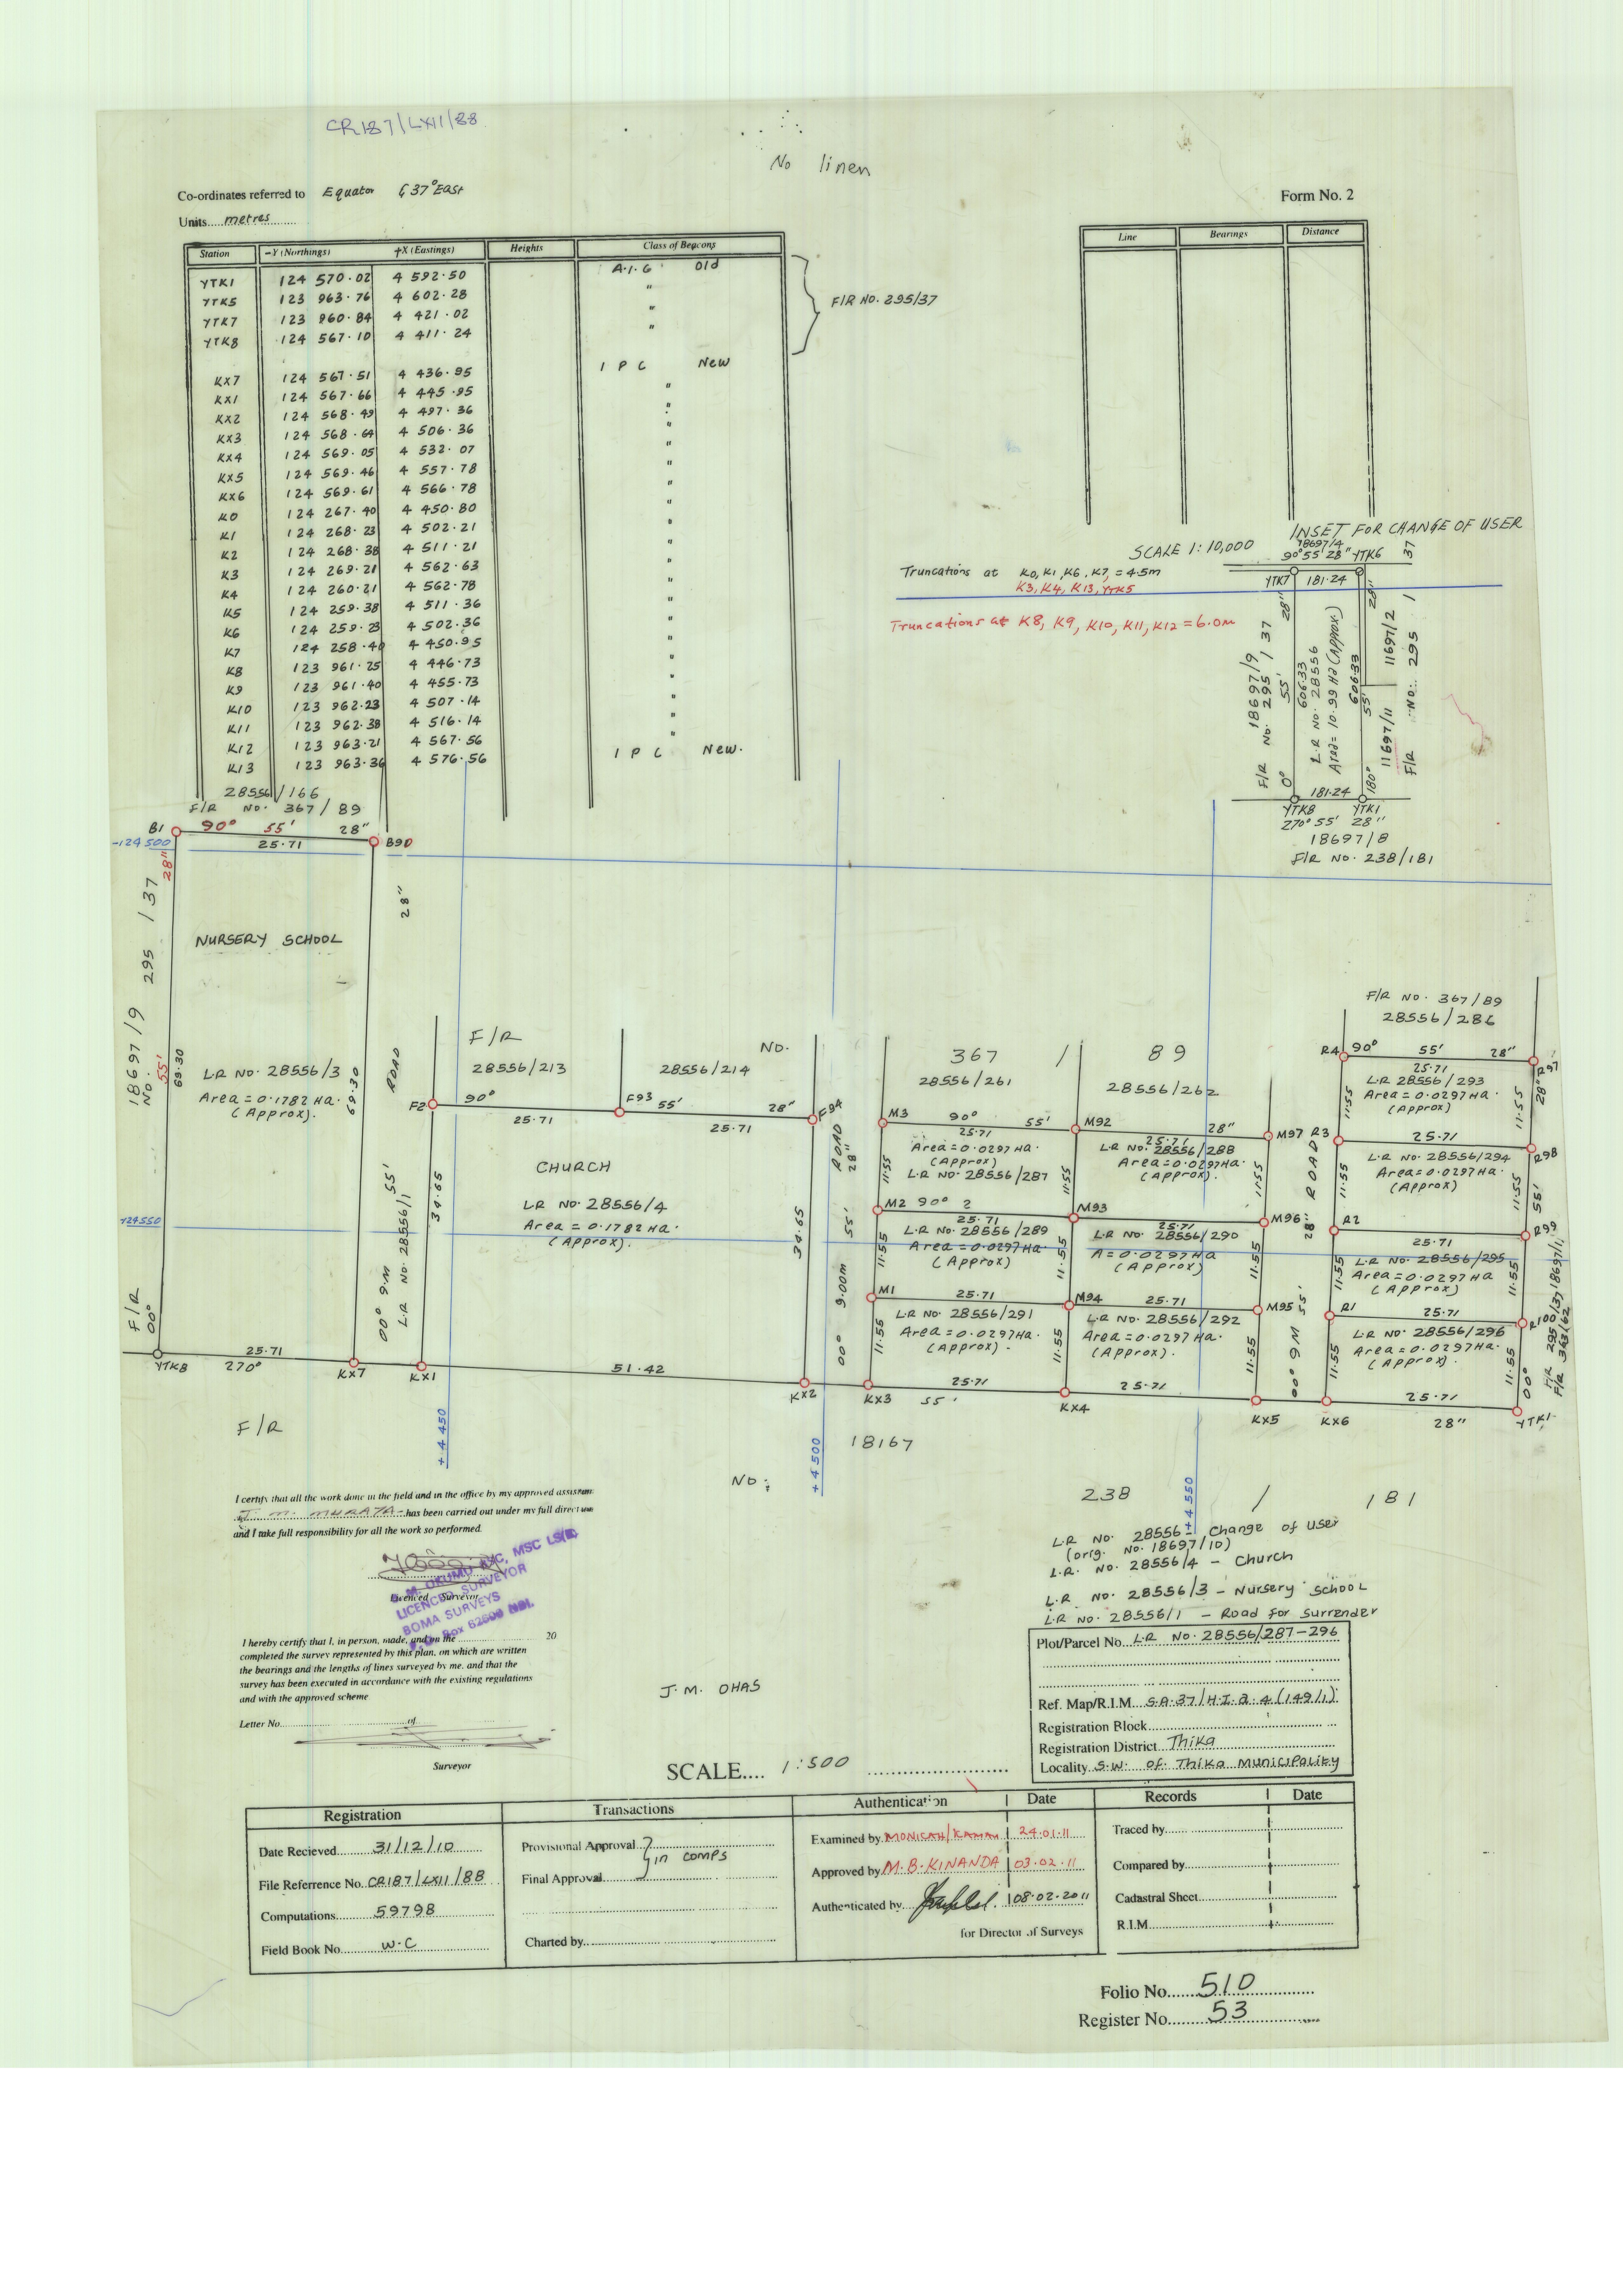 CR187/LXII/88
No linen
Co-ordinates referred to Equator & 37° East
Form No. 2
Units....metres
Station -Y (Northings) +X (Eastings) Heights Class of Beacons
YTK1 124 570.02 4 592.50 A.I.G Old
YTK5 123 963.76 4 602.28 "
YTK7 123 960.84 4 421.02 "
YTK8 124 567.10 4 411.24 "
F/R No. 295/37
KX7 124 567.51 4 436.95 I P C New
KX1 124 567.66 4 445.95 "
KX2 124 568.49 4 497.36 "
KX3 124 568.64 4 506.36 "
KX4 124 569.05 4 532.07 "
KX5 124 569.46 4 557.78 "
KX6 124 569.61 4 566.78 "
K0 124 267.40 4 450.80 "
K1 124 268.23 4 502.21 "
K2 124 268.38 4 511.21 "
K3 124 269.21 4 562.63 "
K4 124 260.21 4 562.78 "
K5 124 259.38 4 511.36 "
K6 124 259.23 4 502.36 "
K7 124 258.40 4 450.95 "
K8 123 961.25 4 446.73 "
K9 123 961.40 4 455.73 "
K10 123 962.23 4 507.14 "
K11 123 962.38 4 516.14 "
K12 123 963.21 4 567.56 "
K13 123 963.36 4 576.56 I P C New.
Line Bearings Distance
INSET FOR CHANGE OF USER
SCALE 1:10,000
18697/4
90° 55' 28" YTK6
37
YTK7 181.24
Truncations at K0, K1, K6, K7, = 4.5m
K3, K4, K13, YTK5
Truncations at K8, K9, K10, K11, K12 = 6.0m
18697/9
F/R No. 295, 37
0° 55' 28"
606.33
L.R No. 28556
Area = 10.99 Ha (Approx)
606.33
180° 55' 28"
11697/11 11697/2
F/R No. 295 1
181.24
YTK8 YTK1
270° 55' 28"
18697/8
F/R No. 238/181
28556/166
F/R No. 367/89
B1 90° 55' 28" B90
25.71
-124 500
28"
28"
18697/9 295/37
No.
55'
69.30
F/R
00°
NURSERY SCHOOL
L.R No. 28556/3
Area = 0.1782 Ha.
(Approx).
69.30
ROAD
00° 9 M 55'
L.R No. 28556/1
F/R No. 367 / 89
28556/213
28556/214
28556/261
28556/262
F2 90° F93 55' 28" F94
25.71 25.71
34.65
CHURCH
L.R No. 28556/4
Area = 0.1782 Ha.
(Approx).
34.65
ROAD
28"
55'
9.00m
00°
M3 90° 55' M92 28" M97
25.71 25.71
11.55 11.55 11.55
Area = 0.0297 Ha.
(Approx)
L.R No. 28556/287
L.R No. 28556/288
Area = 0.0297 Ha.
(Approx).
M2 90° 2 M93 M96
25.71 25.71
11.55 11.55 11.55
L.R No. 28556/289
Area = 0.0297 Ha.
(Approx)
L.R No. 28556/290
A = 0.0297 Ha
(Approx)
M1 25.71 M94 25.71 M95
11.55 11.55 11.55
L.R No. 28556/291
Area = 0.0297 Ha.
(Approx).
L.R No. 28556/292
Area = 0.0297 Ha.
(Approx).
ROAD
28"
55'
00° 9 M
F/R No. 367/89
28556/286
R4 90° 55' 28" R97
25.71
11.55 11.55 28"
L.R 28556/293
Area = 0.0297 Ha.
(Approx)
R3 25.71 R98
11.55 11.55 55'
L.R No. 28556/294
Area = 0.0297 Ha.
(Approx)
R2 25.71 R99
11.55 11.55
L.R No. 28556/295
Area = 0.0297 Ha
(Approx)
R1 25.71 R100
11.55 11.55 00°
L.R No. 28556/296
Area = 0.0297 Ha.
(Approx).
F/R 343/62
-124550
YTK8 25.71 KX7 KX1 51.42 KX2 KX3 25.71 KX4 25.71 KX5 KX6 25.71 YTK1
270° 55' 28"
+4 450
+4 500
+4 550
F/R No. 238 / 181
18167
I certify that all the work done in the field and in the office by my approved assistant
J. M. MURAYA has been carried out under my full direction
and I take full responsibility for all the work so performed.
Licenced Surveyor
M. OKUMU MSC LS(K)
LICENCED SURVEYOR
BOMA SURVEYS
Box 62500 NBI.
I hereby certify that I, in person, made, and on the 20
completed the survey represented by this plan, on which are written
the bearings and the lengths of lines surveyed by me, and that the
survey has been executed in accordance with the existing regulations
and with the approved scheme
Letter No. of
Surveyor
J. M. OHAS
SCALE.... 1:500
L.R No. 28556 - Change of User
(orig. No. 18697/10)
L.R. No. 28556/4 - Church
L.R No. 28556/3 - Nursery School
L.R No. 28556/1 - Road for Surrender
Plot/Parcel No. L.R No. 28556/287-296
Ref. Map/R.I.M. S.A.37/H.I.2.4 (149/1).
Registration Block
Registration District Thika
Locality S.W. of Thika Municipality
Registration Transactions Authentication Date Records Date
Date Recieved 31/12/10
File Referrence No. CR187/LXII/88
Computations 59798
Field Book No. W.C
Provisional Approval
Final Approval
in comps
Charted by
Examined by MONICAH/KAMAU 24.01.11
Approved by M.B. KINANDA 03.02.11
Authenticated by 08.02.2011
for Director of Surveys
Traced by
Compared by
Cadastral Sheet
R.I.M.
Folio No. 510
Register No. 53